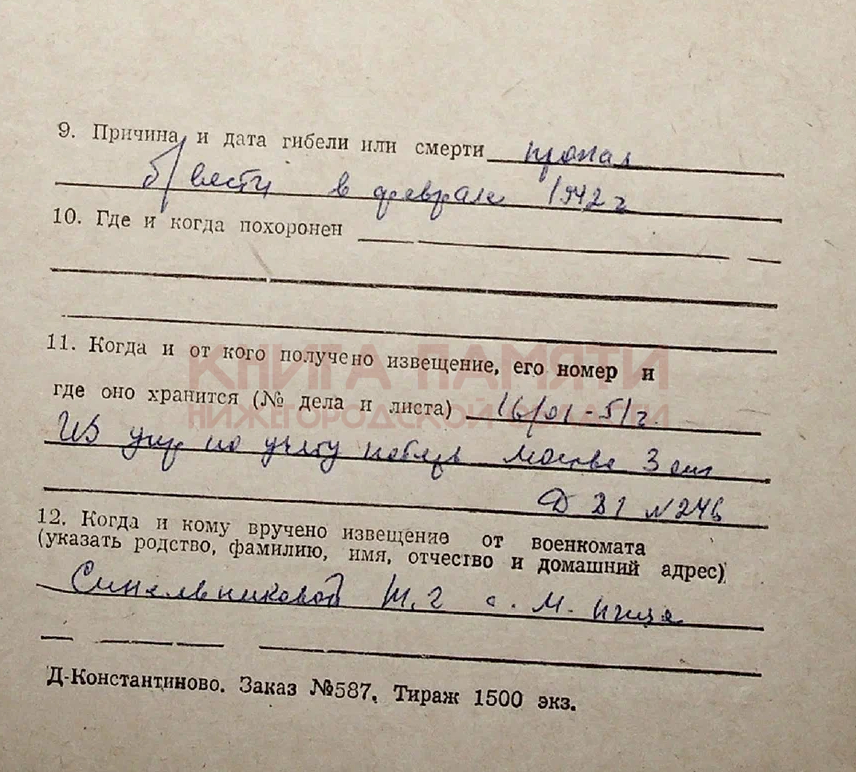 9. Причина и дата гибели или смерти пропал
б/вести в феврале 1942 г
10. Где и когда похоронен
11. Когда и от кого получено извещение, его номер и
КНИГА ПАМЯТИ
где оно хранится (№ дела и листа) 16/01-51г.
НИЖЕГОРОДСКОЙ ОБЛАСТИ
Из упр по учету Москва 3
Д 31 N 246
12. Когда и кому вручено извещение от военкомата
(указать родство, фамилию, имя, отчество и домашний адрес)
Синельниковой с. М.
Д-Константиново. Заказ №587. Тираж 1500 экз.